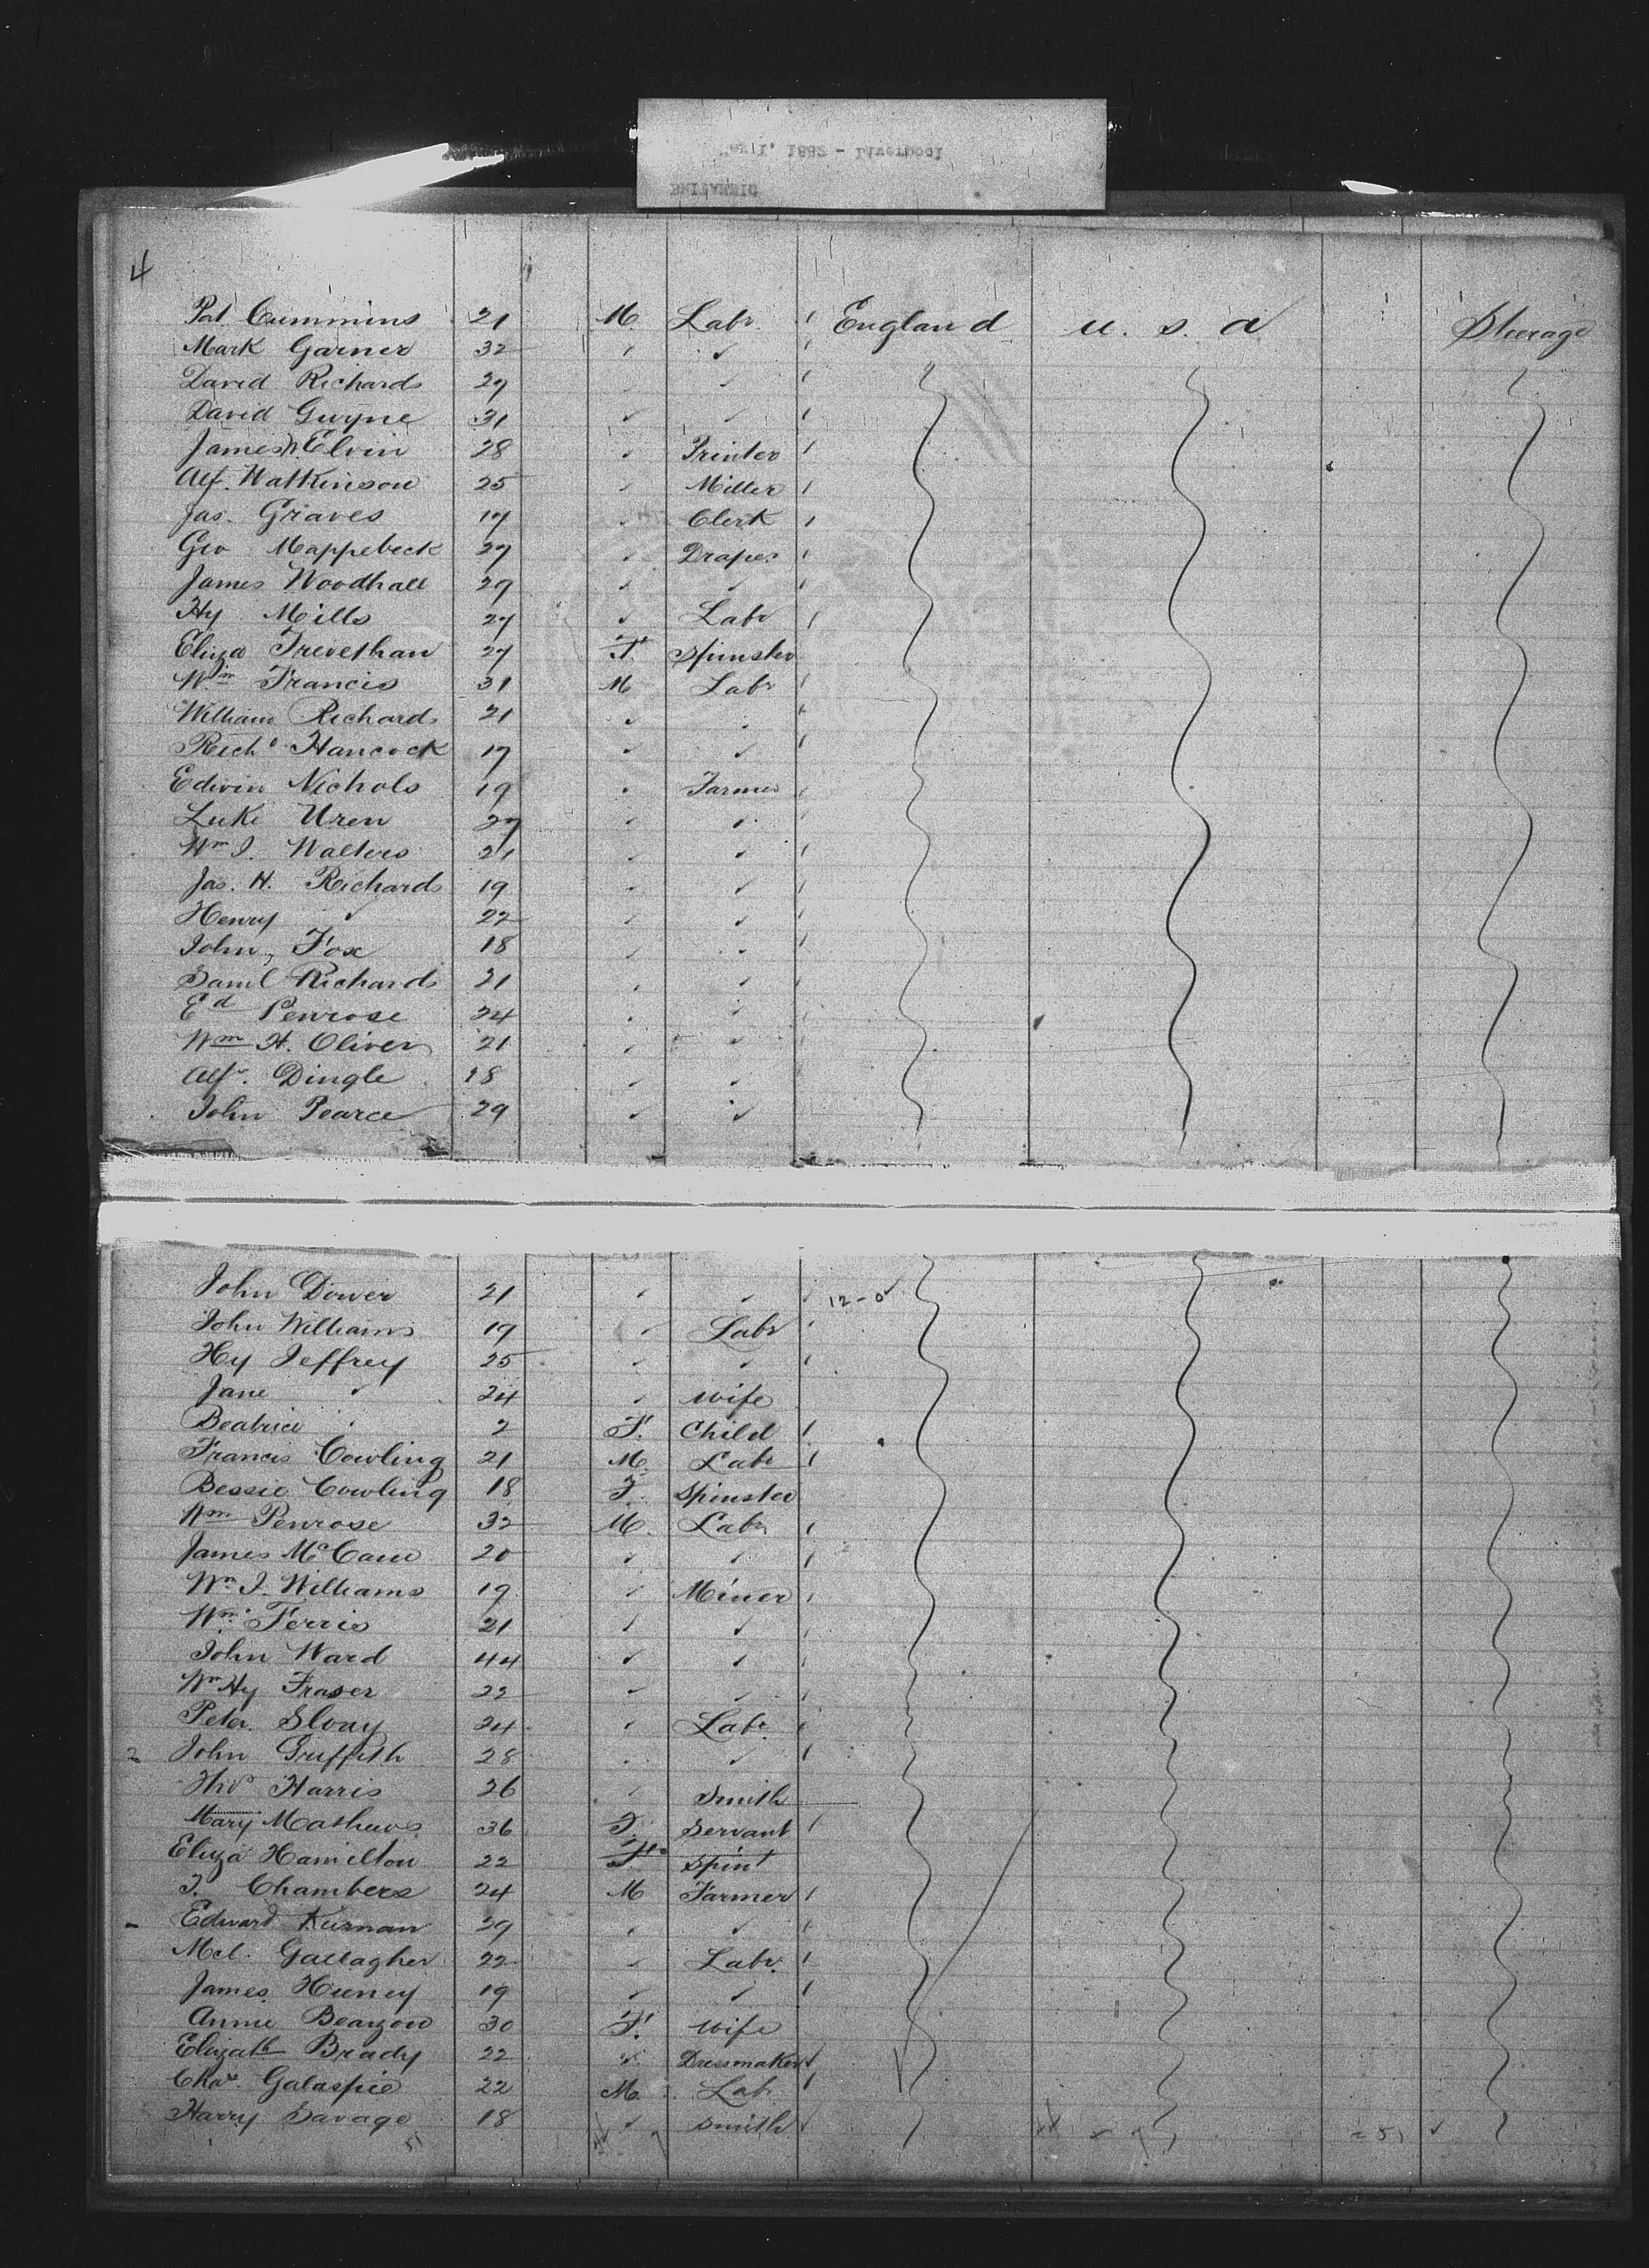 4
Pat Cummins 21 M. Labr. England U. S. A Steerage
Mark Garner 32
David Richards 29
David Gwyne 31
James Elvin 28 Printer
Alf. Watkinson 25 Miller
Jas. Graves 17 Clerk
Geo Mappebeck 27 Draper
James Woodhall 29
Hy Mills 27 Labr
Eliza Trevethan 27 F. Spinster
Wm Francis 31 M Labr
William Richards 21
Richd Hancock 17
Edwin Nichols 19 Farmer
Luke Uren 27
Wm J. Walters 21
Jas. H. Richards 19
Henry 22
John Fox 18
Saml Richards 21
Ed Penrose 24
Wm H. Oliver 21
Alf. Dingle 18
John Pearce 29
John Dower 21 12-0
John Williams 19 Labr
Hy Jeffrey 25
Jane 24 wife
Beatrice 2 F. Child
Francis Cowling 21 M. Labr
Bessie Cowling 18 F. Spinster
Wm Penrose 32 M. Labr
James McCann 20
Wm J. Williams 19 Miner
Wm Ferris 21
John Ward 44
Wm Hy Fraser 22
Peter 24 Labr
2 John Griffith 28
Thos Harris 26 Smith
Mary Mathews 36 F. Servant
Eliza Hamilton 22 F. Spint
J. Chambers 24 M Farmer
Edward Kiernan 29
Mcl. Gallagher 22 Labr.
James 19
Annie 30 F. wife
Elizath Brady 22 Dressmaker
Chas. Galaspie 22 M. Lab
Harry Savage 18 Smith
51 = 51